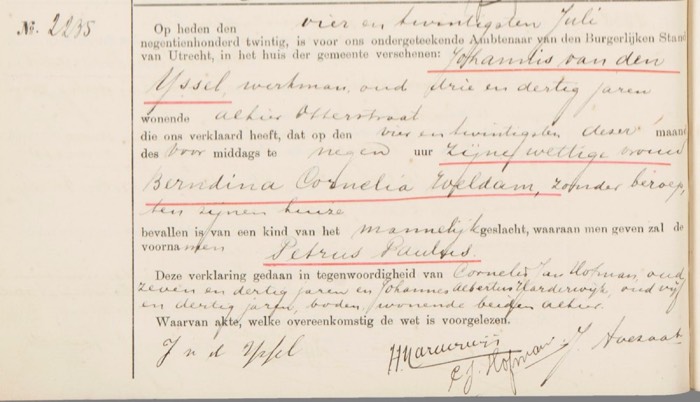 No. 2235
Op heden den vier en twintigsten Juli
negentienhonderd twintig, is voor ons ondergeteekende Ambtenaar van den Burgerlijken Stand
van Utrecht, in het huis der gemeente verschenen: Johannis van den
Yssel, werkman, oud drie en dertig jaren
wonende alhier Otterstraat
die ons verklaard heeft, dat op den vier en twintigsten deser maand
des voor middags te negen uur zijne wettige vrouw
Berendina Cornelia Eveldam, zonder beroep,
ten zijnen huize
bevallen is van een kind van het mannelijk geslacht, waaraan men geven zal de
voornamen Petrus Paulus
Deze verklaring gedaan in tegenwoordigheid van Cornelis Jan Hofman, oud
zeven en dertig jaren en Johannes Albertus Harderwijk, oud vijf
en dertig jaren, boden, wonende beiden alhier.
Waarvan akte, welke overeenkomstig de wet is voorgelezen.
J v d Yssel
Harderwijk
C. J. Hofman